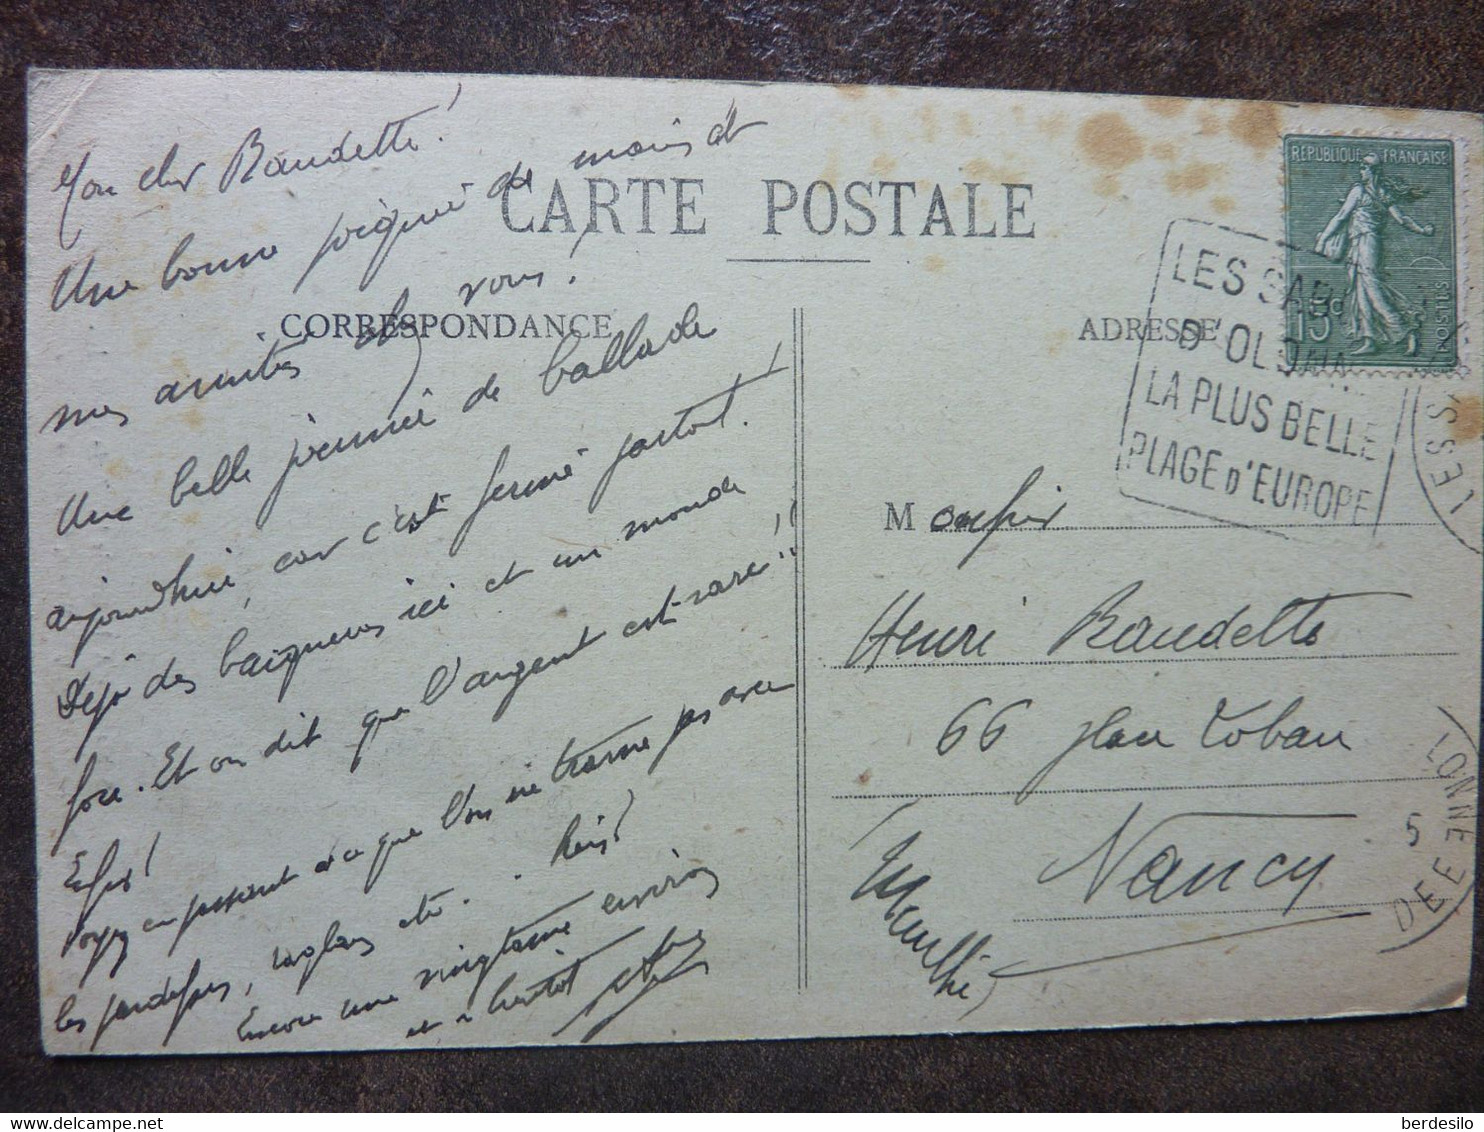 CARTE POSTALE
CORRESPONDANCE
Mon cher Baudette!
Une bonne poignée de mains et
mes amitiés à vous!
Une belle journée de ballade
aujourd'hui, car c'est fermé partout!
Déjà des baigneurs ici et un monde
fou. Et on dit que l'argent est rare!!
Enfin!
voyez en passant à ce que l'on ne traine pas avec
les pardessus, raglans etc. Reçu?
Encore une vingtaine environ
et à bientôt
ADRESSE
REPUBLIQUE FRANÇAISE
15c
POSTES
LES SABLES
D'OLONNE
LA PLUS BELLE
PLAGE D'EUROPE
LES S
Monsieur
Henri Baudette
66 Jean
Nancy
5
LONNE
DEE
berdesilo